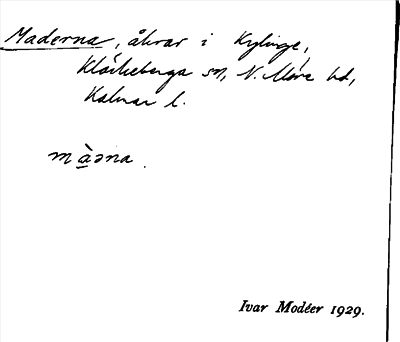 Maderna, åkrar i Kylinge,
Kläckeberga sn, N. Möre hd,
Kalmar l.
màǝna.
Ivar Modéer 1929.